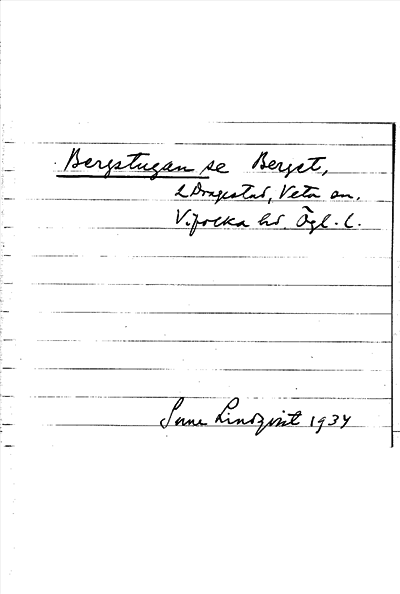 Bergstugan se Berget,
L Dragestad, Veta sn.
Vifolka hd. Ögl. L.
Sune Lindqvist 1934